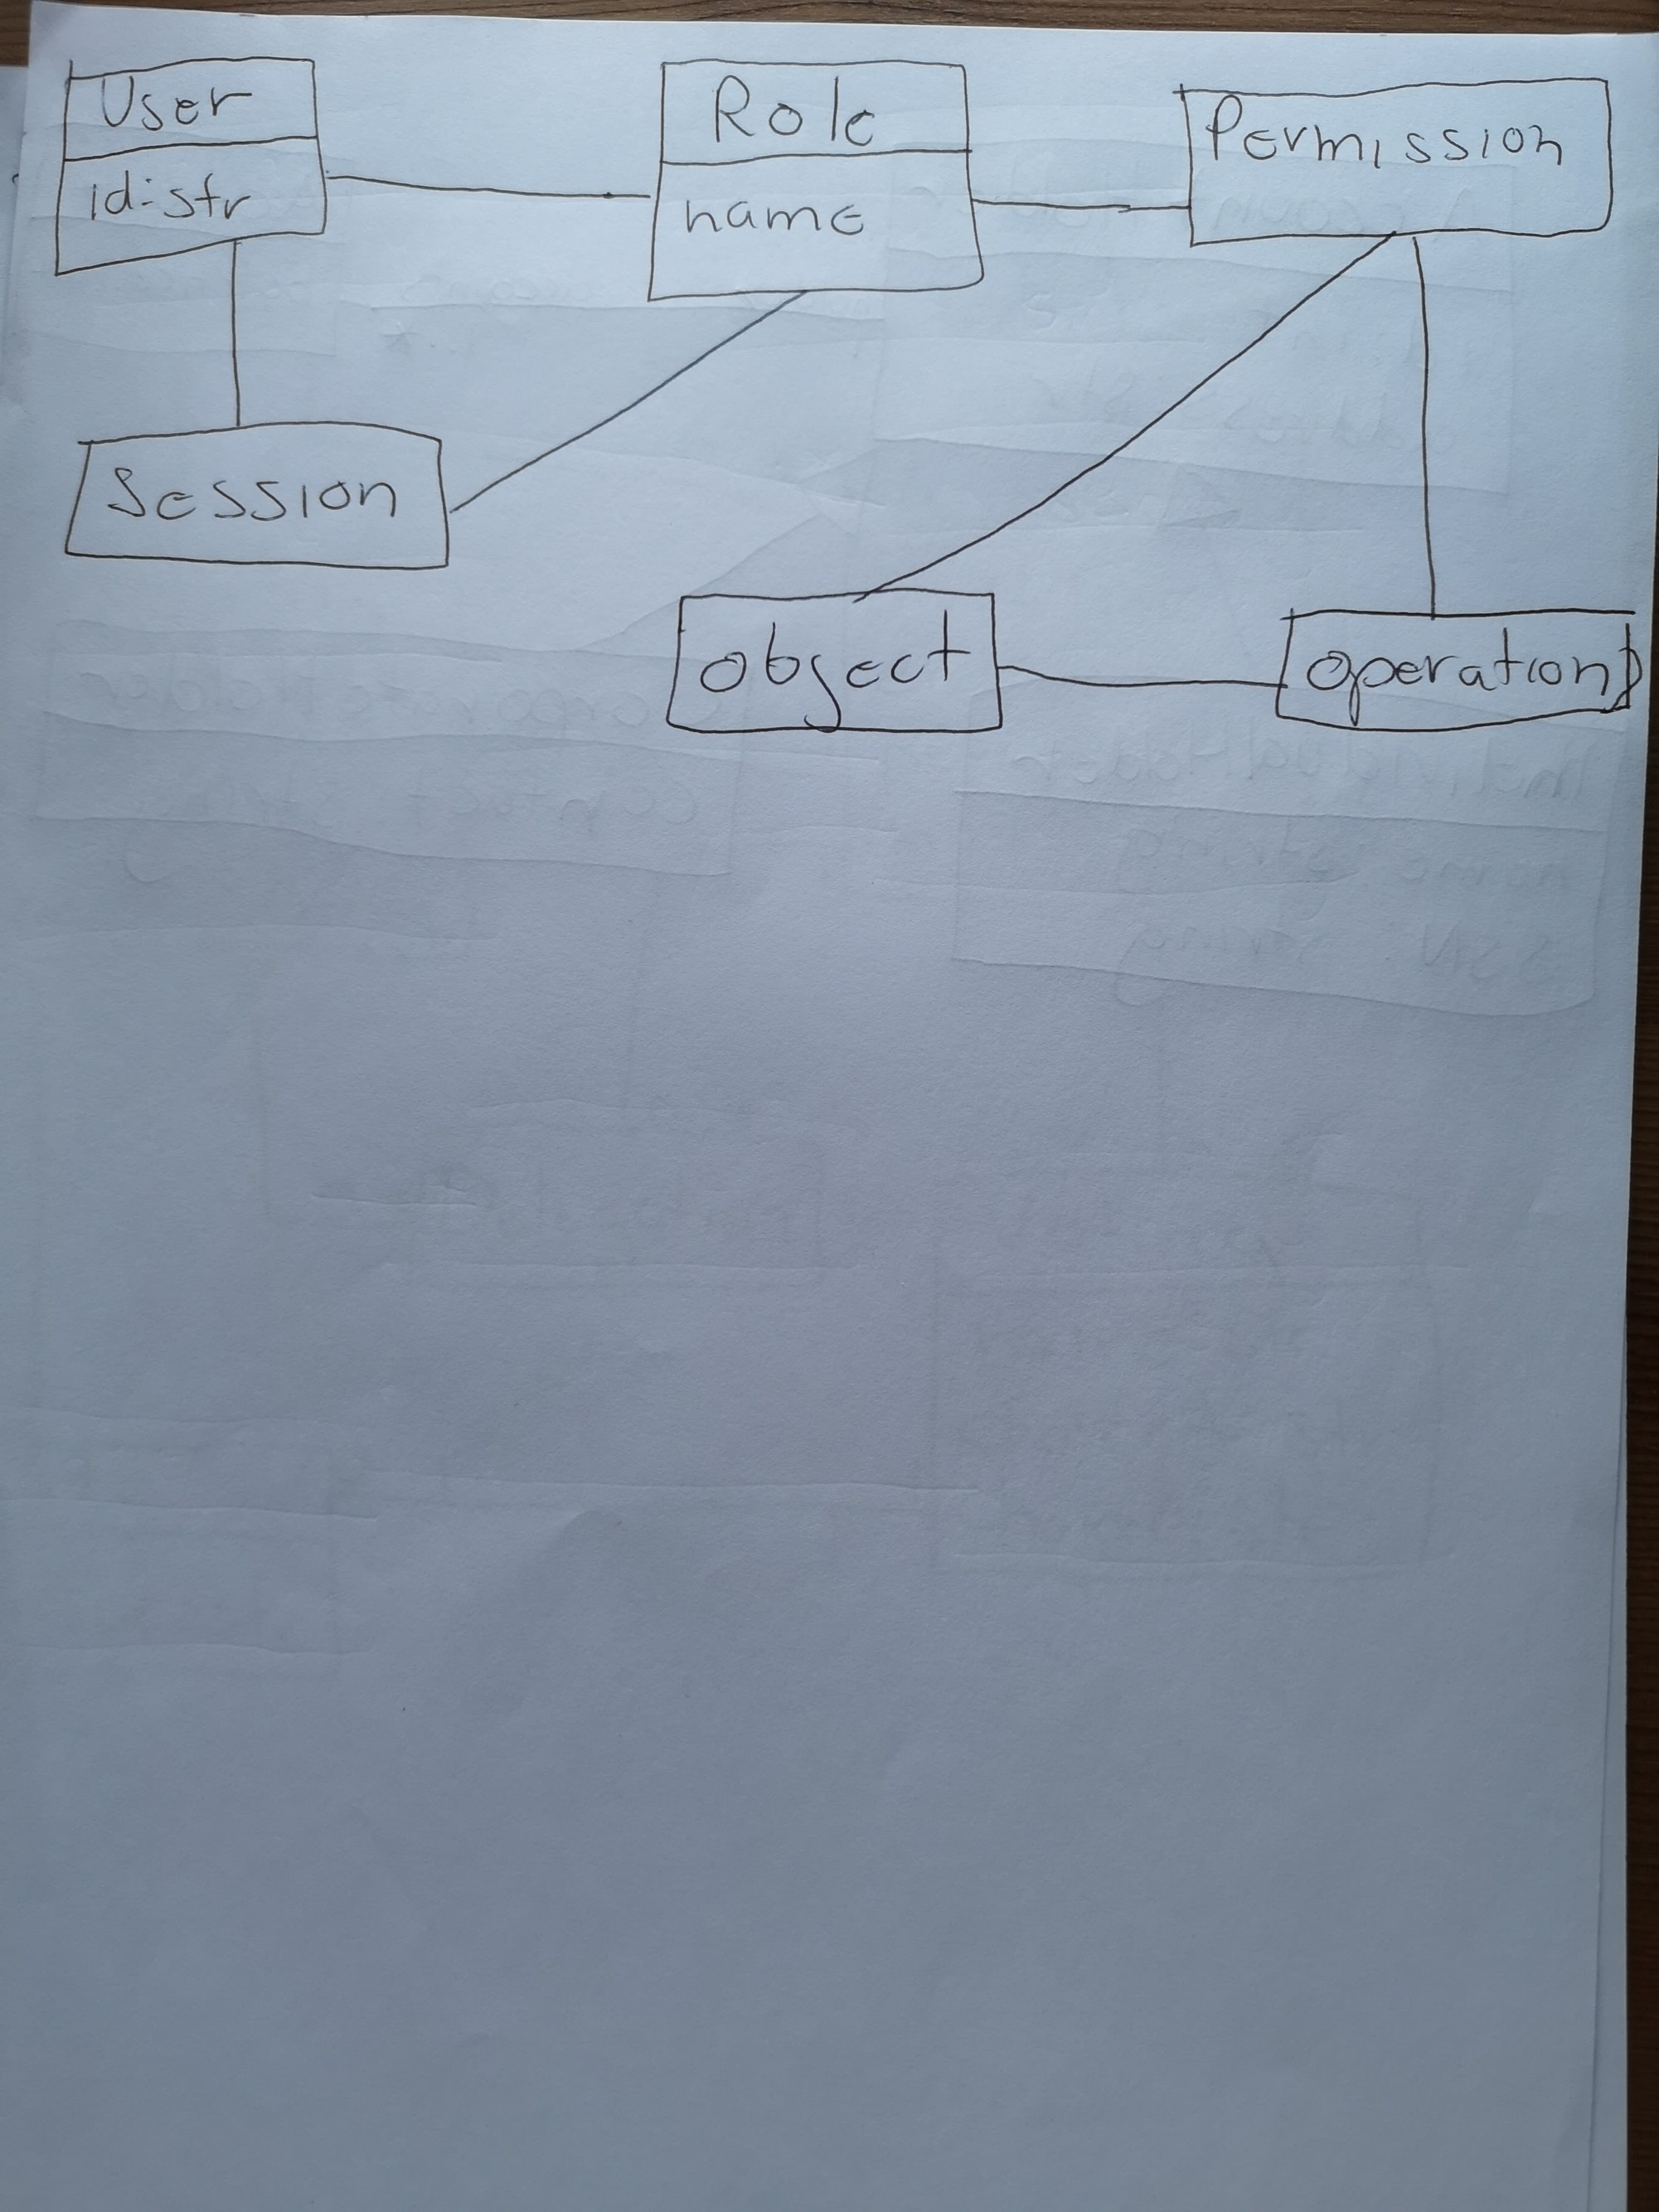 User
id:str
Role
name
Permission
Session
object
operation